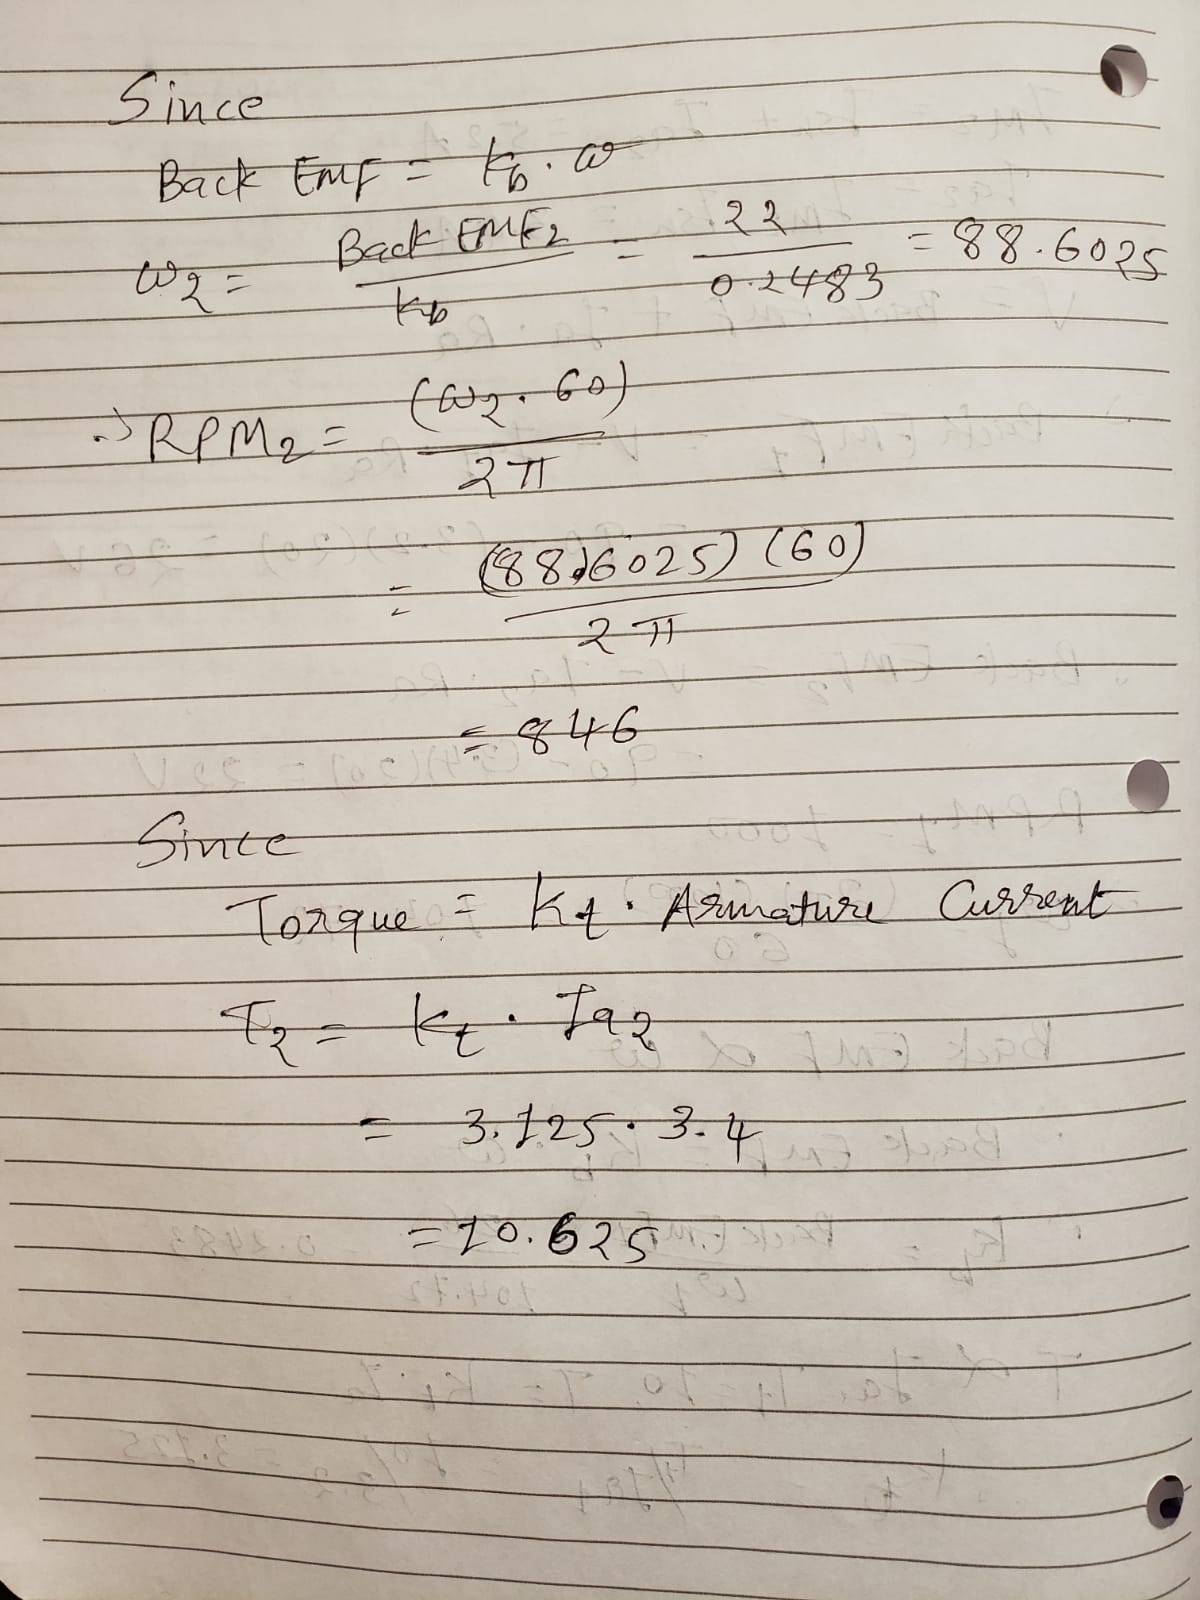 Since
Back EMF = Kb · ω
ω2 = Back EMF2 / Kb = 22 / 0.2483 = 88.6025
∴ RPM2 = (ω2 · 60) / 2π
= (88.6025) (60) / 2π
= 846
Since
Torque = Kt · Armature Current
T2 = Kt · Ia2
= 3.125 · 3.4
= 10.625